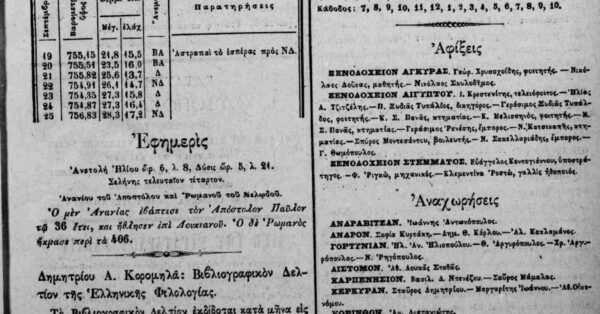 Σεπτέμβρ
Παρομετρ
ὕψος
Μέγ. ἐλάχ
Ἄνεμ
Παρατηρήσεις
19 755,15 24,8 15,5 ΒΑ Ἀστραπαὶ τὸ ἑσπέρας πρὸς ΝΔ.
20 755,54 23,5 16,0 ΒΑ
21 755,82 25,6 13,7 Δ
22 754,91 26,4 14,7 ΝΔ
23 754,35 27,3 15,8 Δ
24 754,87 27,3 16,4 Δ
25 756,83 28,3 17,2 ΝΔ
Ἐφημερὶς
Ἀνατολὴ Ἡλίου ὥρ. 6, λ. 8, Δύσις ὥρ. 5, λ. 24.
Σελήνης τελευταῖον τέταρτον.
Ἀνανίου τοῦ Ἀποστόλου καὶ Ῥωμανοῦ τοῦ Μελῳδοῦ.
Ὁ μὲν Ἀνανίας ἐβάπτισε τὸν Ἀπόστολον Παῦλον
τῷ 36 ἔτει, καὶ ἤθλησεν ἐπὶ Λουκιανοῦ. Ὁ δὲ Ῥωμανὸς
ἤκμασε περὶ τὰ 406.
Δημητρίου Α. Κορομηλᾶ: Βιβλιογραφικὸν Δελ-
τίον τῆς Ἑλληνικῆς Φιλολογίας.
Τὸ Βιβλιογραφικὸν Δελτίον ἐκδίδοται κατὰ μῆνα εἰς
Κάθοδος: 7, 8, 9, 10, 11, 12, 1, 2, 3, 4, 5, 6, 7, 8, 9, 10.
Ἀφίξεις
ΞΕΝΟΔΟΧΕΙΟΝ ΑΓΚΥΡΑΣ, Γεώρ. Χρυσοχοΐδης, φοιτητής. — Νικό-
λαος Δούκας, μαθητής.— Νικόλαος Σκυλοδῆμος.
ΞΕΝΟΔΟΧΕΙΟΝ ΑΙΓΥΠΤΟΥ, Ι. Κρεστενίτης, τελειόφοιτος.— Ἠλίας
Α. Τζιτζέλης.— Π. Ξυδιᾶς Τυπάλδος, δικηγόρος.— Γεράσιμος Ξυδιᾶς Τυπάλ-
δος, φοιτητής.— Κ. Σ. Πανᾶς, κτηματίας.— Κ. Μελισσηνός, φοιτητής.— Ν.
Σ. Πανᾶς, κτηματίας.— Γεράσιμος Ῥενέσης, ἔμπορος.— Ν. Κατσικαπῆς, κτη-
ματίας.— Σπῦρος Μοντεσάντον, βουλευτής.— Ν. Σακελλαριάδης, ἔμπορος.—
Γ. Θωμόπουλος.
ΞΕΝΟΔΟΧΕΙΟΝ ΣΤΕΜΜΑΤΟΣ, Εὐάγγελος Κοντογιάννου, ὑποστρά-
τηγος.— Φ. Ριγκώ, μηχανικός.— Κλεμεντίνα Ῥεστώ, γαλλὶς ἠθοποιός.
Ἀναχωρήσεις
ΑΝΔΡΑΒΙΤΣΑΝ. Ἰωάννης Ἀντωνόπουλος.
ΑΝΔΡΟΝ. Σοφία Κυρτάκη.— Δημ. Θ. Κάρλου.— Ἀλ. Κακλαμάνος.
ΓΟΡΤΥΝΙΑΝ. Ἠλ. Ἀν. Ἠλιοπούλου.— Θ. Ἀργυρόπουλος.— Χρ. Ἀργυ-
ρόπουλος.— Ν. Ῥηγόπουλος.
ΔΙΣΤΟΜΟΝ. Ἀθ. Λουκᾶς Στοθᾶς.
ΚΑΡΠΕΝΗΣΙΟΝ. Βασιλ. Δ. Ντενέζου.— Σταῦρος Μάμαλας.
ΚΕΡΚΥΡΑΝ. Σταῦρος Δημητρίου.— Μαργαρίτης Ἰωάννου.— Ἀθ. Οἰκο-
νόμου.